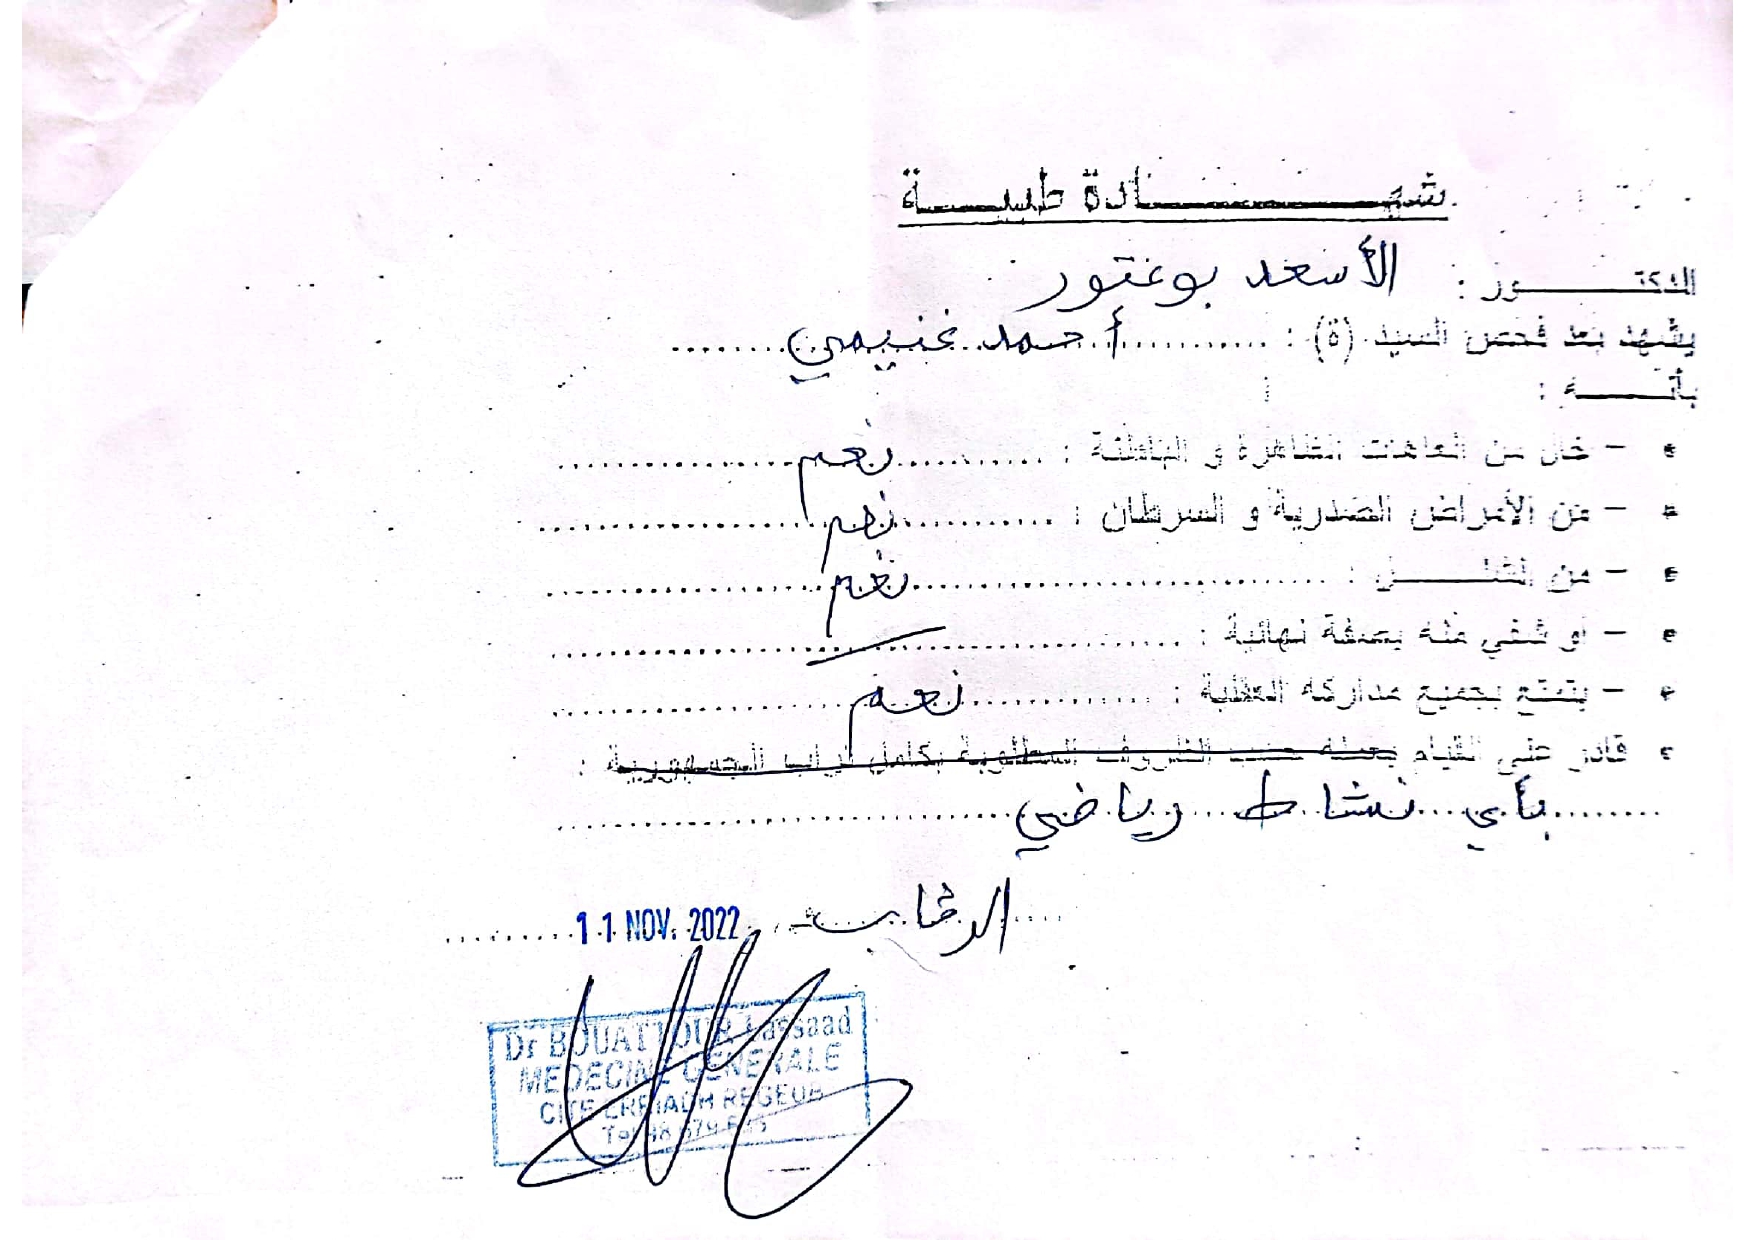 شهـــــــادة طبيـــــة
الدكتـــــــور : الأسعد بوعتور
يشهد بعد فحص السيد (ة) : أحمد غنيمي
بأنـــــه :
- خال من العاهات الظاهرة و الباطنة : نعم
- من الأمراض الصدرية و السرطان : نعم
- من الشلـــــل : نعم
- أو شفي منه بصفة نهائية :
- يتمتع بجميع مداركه العقلية : نعم
قادر على القيام بعمله حسب الظروف المطلوبة بكامل تراب الجمهورية :
بأي نشاط رياضي
الرقاب 11 NOV. 2022
Dr BOUATTOUR Lassaad
MEDECINE GENERALE
CITE ERRIADH REGEUB